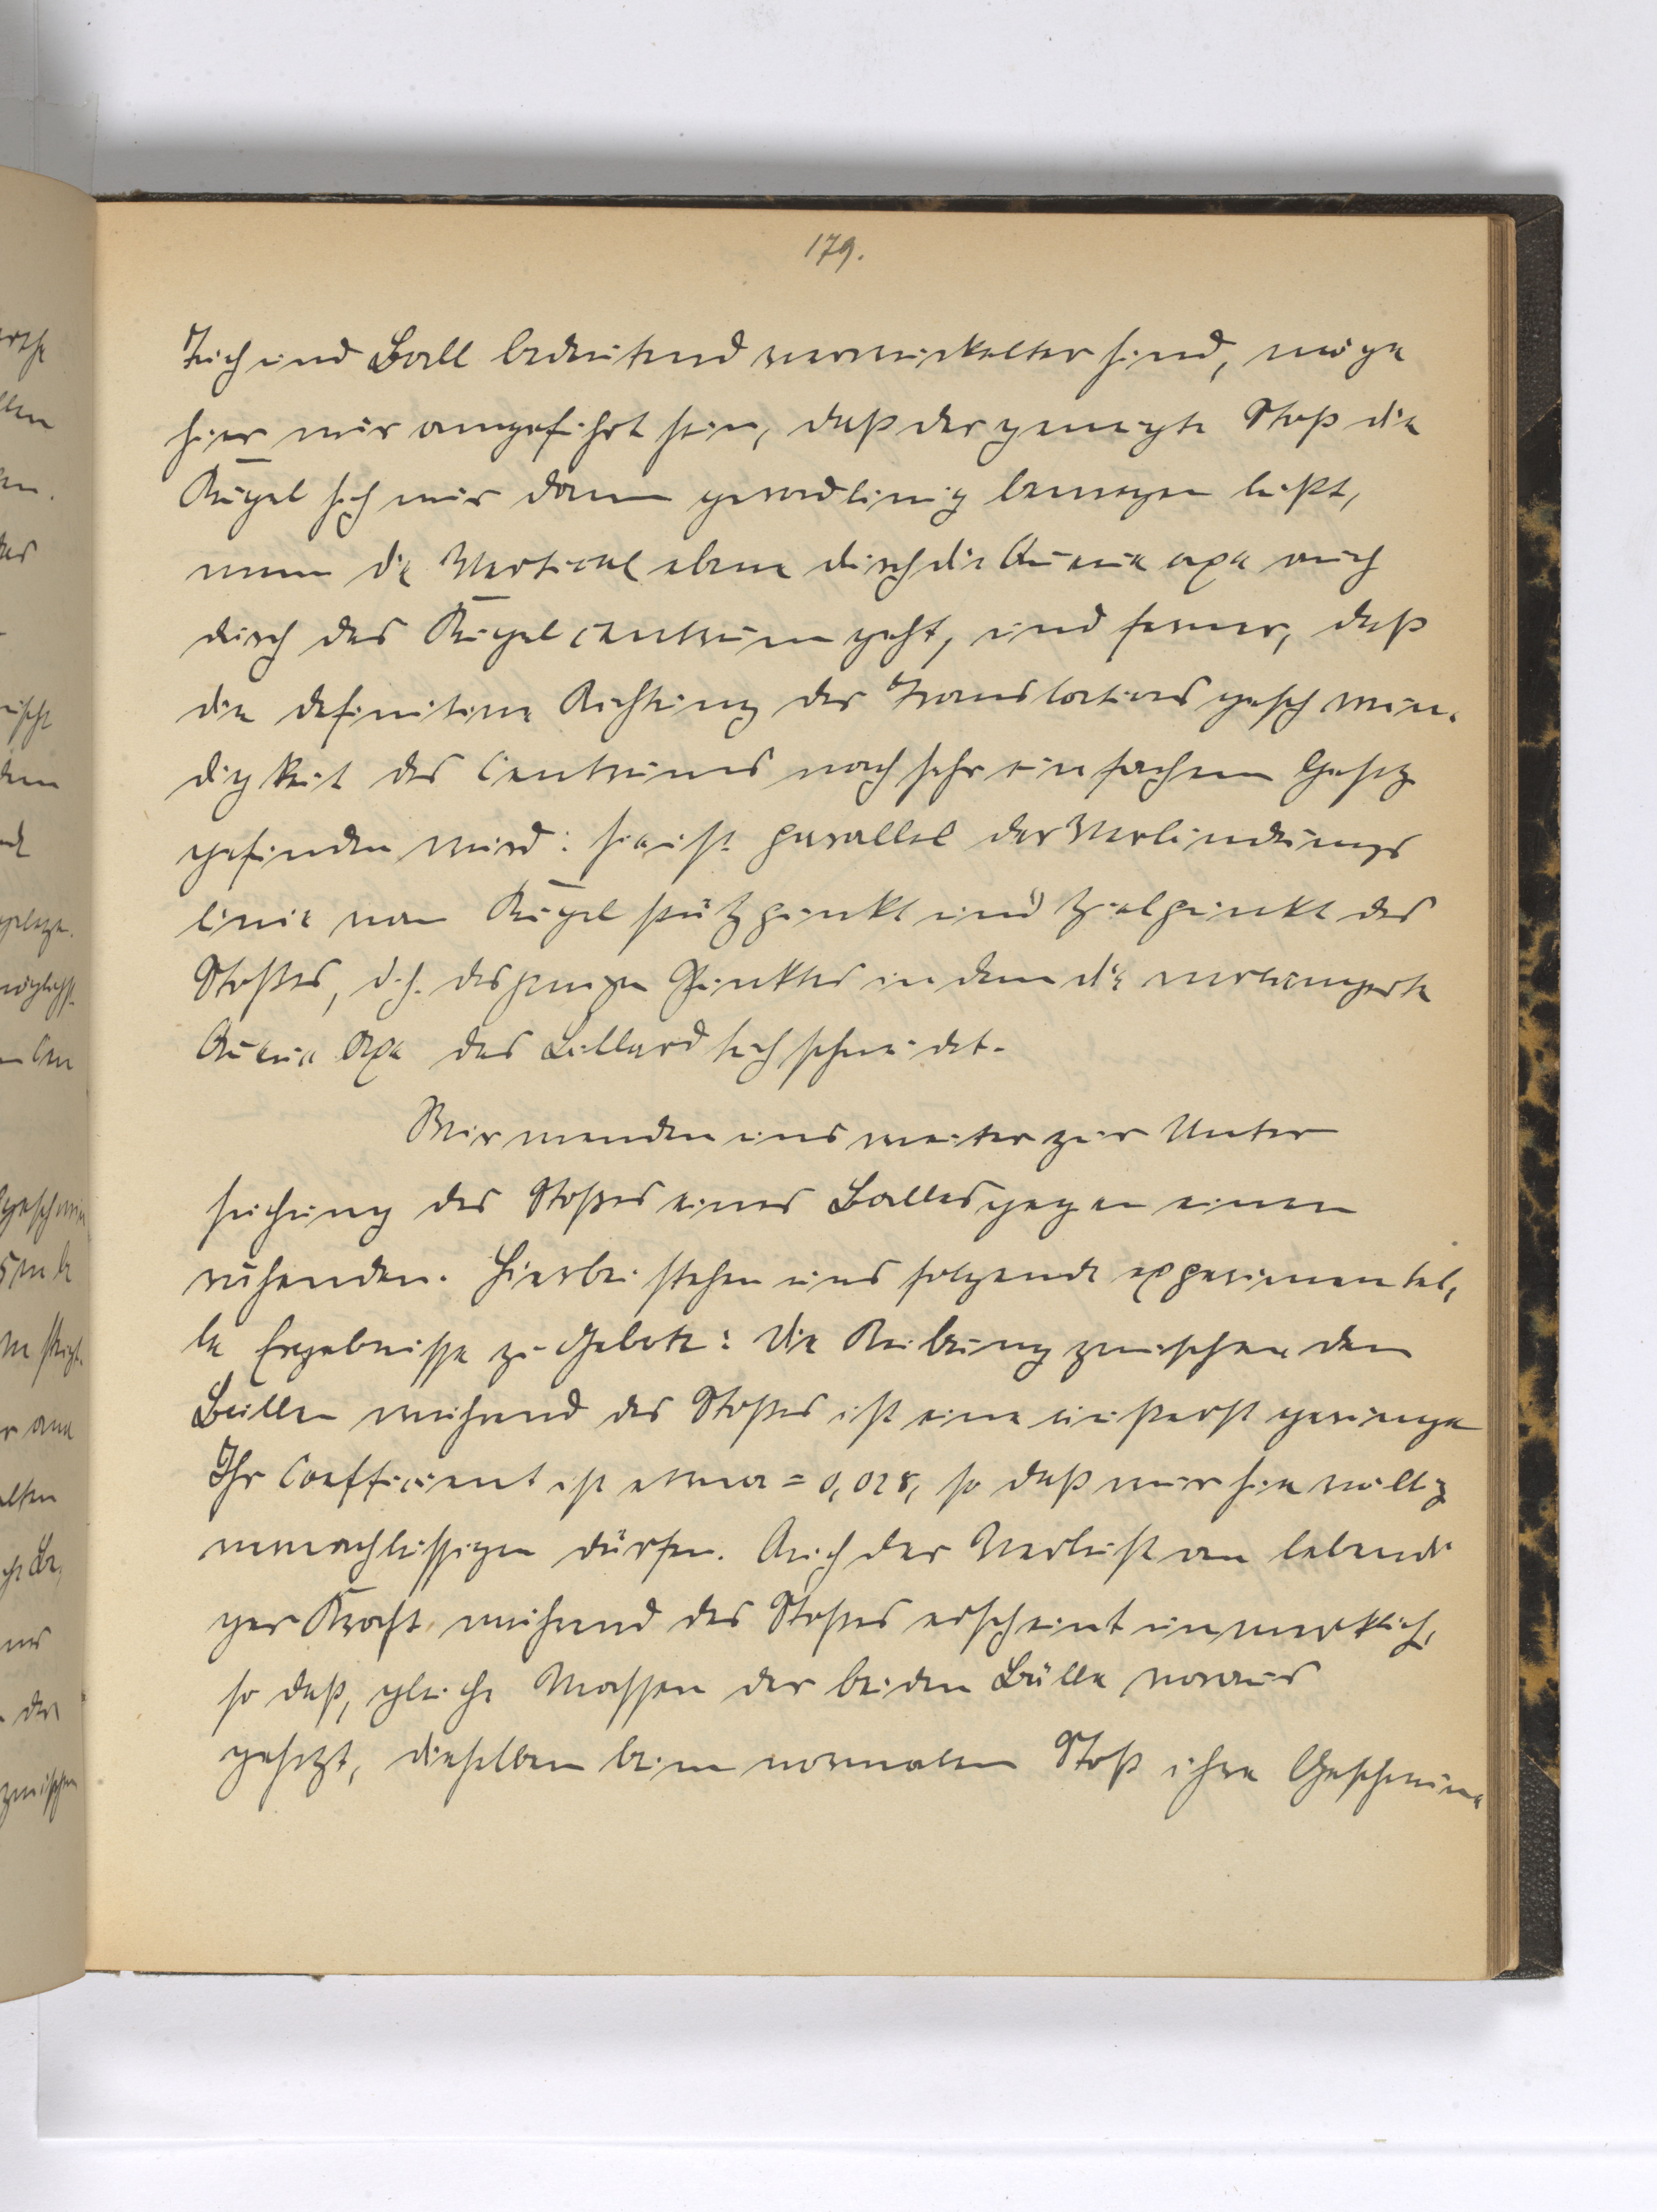 179.
Tuch und Ball bedeutend verwickelter sind, möge
hier nur angeführt sein, daß der geneigte Stoß die
Kugel sich nur dann geradlinig bewegen läßt,
wenn die Verticalebene durch die Queueaxe auch
durch das Kugelcentrum geht, und ferner, daß
die definitive Richtung der Translationsgeschwin-
digkeit des Centrums nach sehr einfachem Gesetz
gefunden wird: sie ist parallel der Verbindungs
linie von Kugelstützpunkt und Zielpunkt des
Stoßes, d.h. desjenigen Punktes in dem die verlängerte
Queue Axe das Billardtuch schneidet.
Wir wenden uns weiter zur Unter
suchung des Stoßes eines Balles gegen einen
ruhenden. Hierbei stehen uns folgende experimentel-
le Ergebnisse zu Gebote: Die Reibung zwischen den
Bällen während des Stoßes ist eine äußerst geringe
Ihr Coefficient ist etwa = 0,028, so daß wir sie völlig
vernachlässigen dürfen. Auch der Verlust an lebendi
ger Kraft während des Stoßes erscheint unmerklich,
so daß, gleiche Massen der beiden Bälle voraus
gesetzt, dieselben beim normalen Stoß ihre Geschwin-